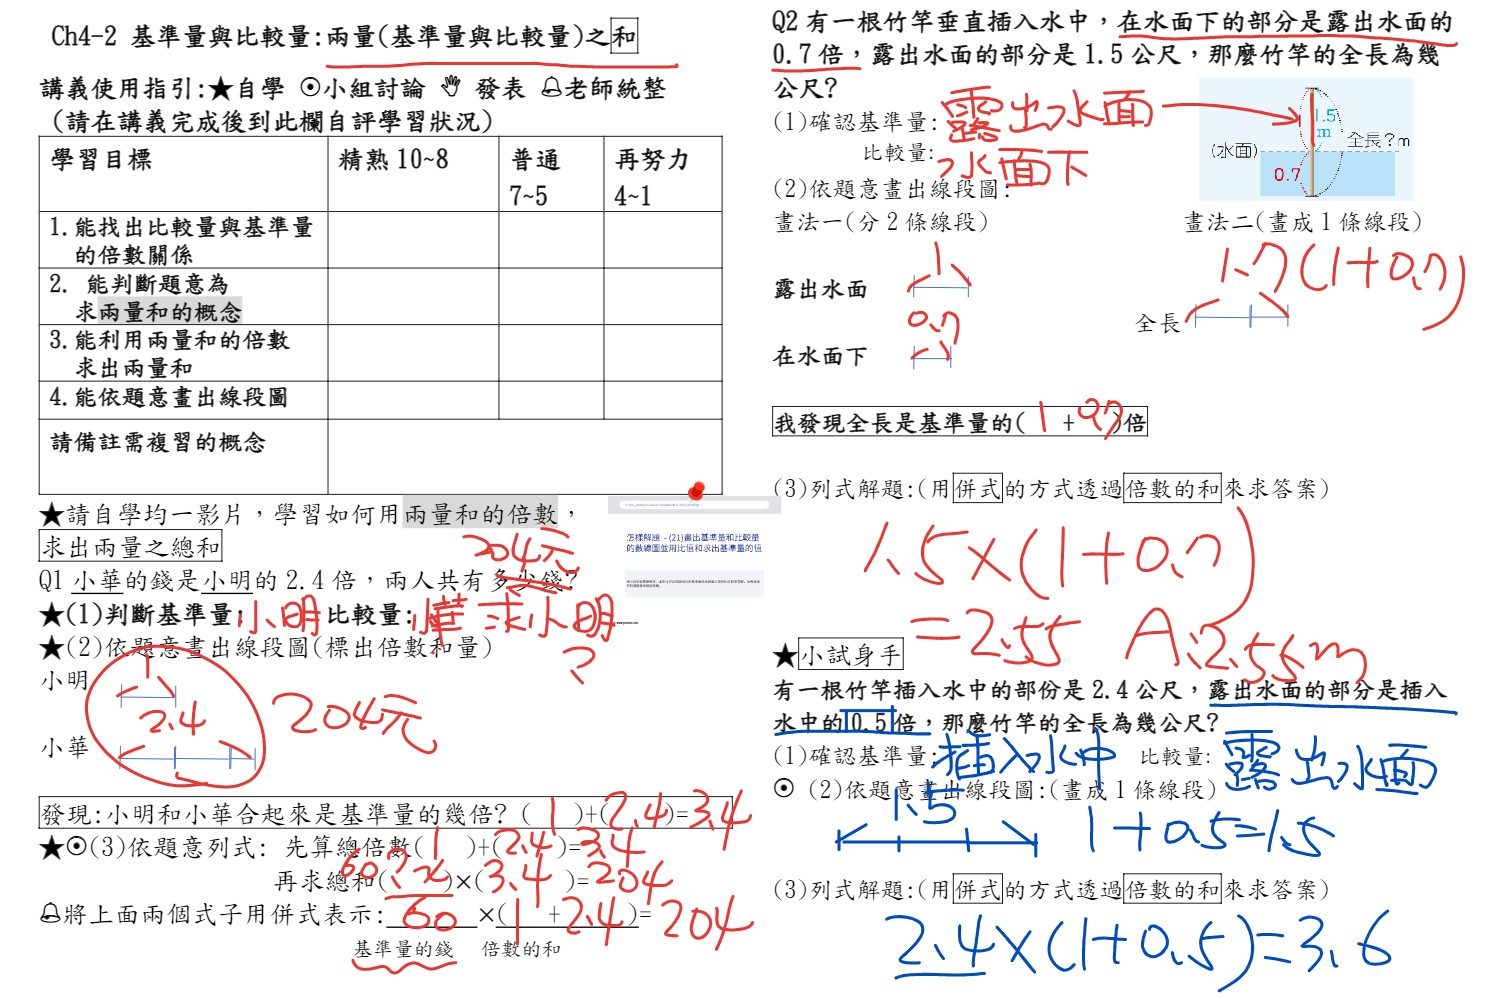 Ch4-2 基準量與比較量:兩量(基準量與比較量)之和
講義使用指引:★自學 ⊙小組討論 🖐 發表 🔔老師統整
(請在講義完成後到此欄自評學習狀況)
學習目標 精熟10~8 普通 7~5 再努力 4~1
1.能找出比較量與基準量
的倍數關係
2. 能判斷題意為
求兩量和的概念
3.能利用兩量和的倍數
求出兩量和
4.能依題意畫出線段圖
請備註需複習的概念
★請自學均一影片，學習如何用兩量和的倍數，
求出兩量之總和
怎樣解題 - (21)畫出基準量和比較量
的數線圖並用比值和求出基準量的值
204元
Q1 小華的錢是小明的 2.4 倍，兩人共有多少錢?
★(1)判斷基準量:小明 比較量:小華 求小明?
★(2)依題意畫出線段圖(標出倍數和量)
小明 1
2.4 204元
小華
發現:小明和小華合起來是基準量的幾倍? ( 1 )+(2.4)=3.4
★⊙(3)依題意列式: 先算總倍數( 1 )+(2.4)=3.4
再求總和(60?元)×(3.4)=204
🔔將上面兩個式子用併式表示: 60 ×(1 +2.4)=204
基準量的錢 倍數的和
Q2 有一根竹竿垂直插入水中，在水面下的部分是露出水面的
0.7 倍，露出水面的部分是 1.5 公尺，那麼竹竿的全長為幾
公尺?
(1)確認基準量: 露出水面
比較量: 水面下
1 1.5 m 全長?m
(水面)
0.7
(2)依題意畫出線段圖:
畫法一(分 2 條線段) 畫法二(畫成 1 條線段)
1 1.7(1+0.7)
露出水面
0.7 全長
在水面下
我發現全長是基準量的( 1 + 0.7 )倍
(3)列式解題:(用併式的方式透過倍數的和來求答案)
1.5×(1+0.7)
=2.55 A:2.55m
★小試身手
有一根竹竿插入水中的部份是 2.4 公尺，露出水面的部分是插入
水中的 0.5 倍，那麼竹竿的全長為幾公尺?
(1)確認基準量:插入水中 比較量: 露出水面
⊙ (2)依題意畫出線段圖:(畫成 1 條線段)
1.5 1+0.5=1.5
(3)列式解題:(用併式的方式透過倍數的和來求答案)
2.4×(1+0.5)=3.6